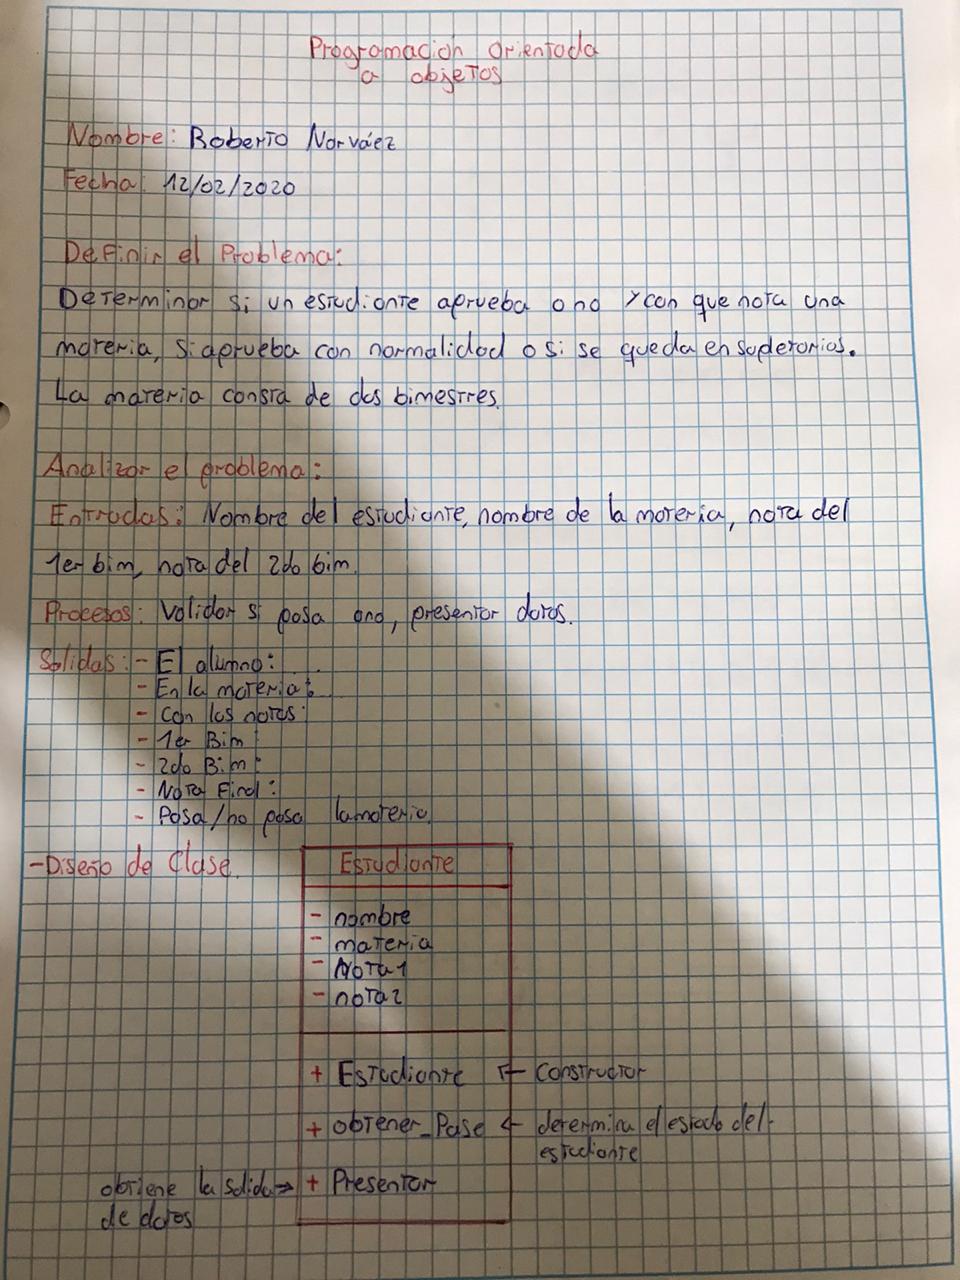 Programación Orientada
a objetos
Nombre: Roberto Narváez
Fecha: 12/02/2020
Definir el Problema:
Determinar si un estudiante aprueba o no y con que nota una
materia, si aprueba con normalidad o si se queda en supletorios.
La materia consta de dos bimestres.
Analizar el problema:
Entradas: Nombre del estudiante, nombre de la materia, nota del
1er bim, nota del 2do bim.
Procesos: Validar si pasa o no, presentar datos.
Salidas: - El alumno:
- En la materia:
- Con las notas:
- 1er Bim:
- 2do Bim:
- Nota Final:
- Pasa/no pasa la materia.
- Diseño de Clase.
Estudiante
- nombre
- materia
- Nota1
- nota2
+ Estudiante ← Constructor
+ obtener_Pase ← determina el estado del
estudiante
obtiene la salida → + Presentar
de datos